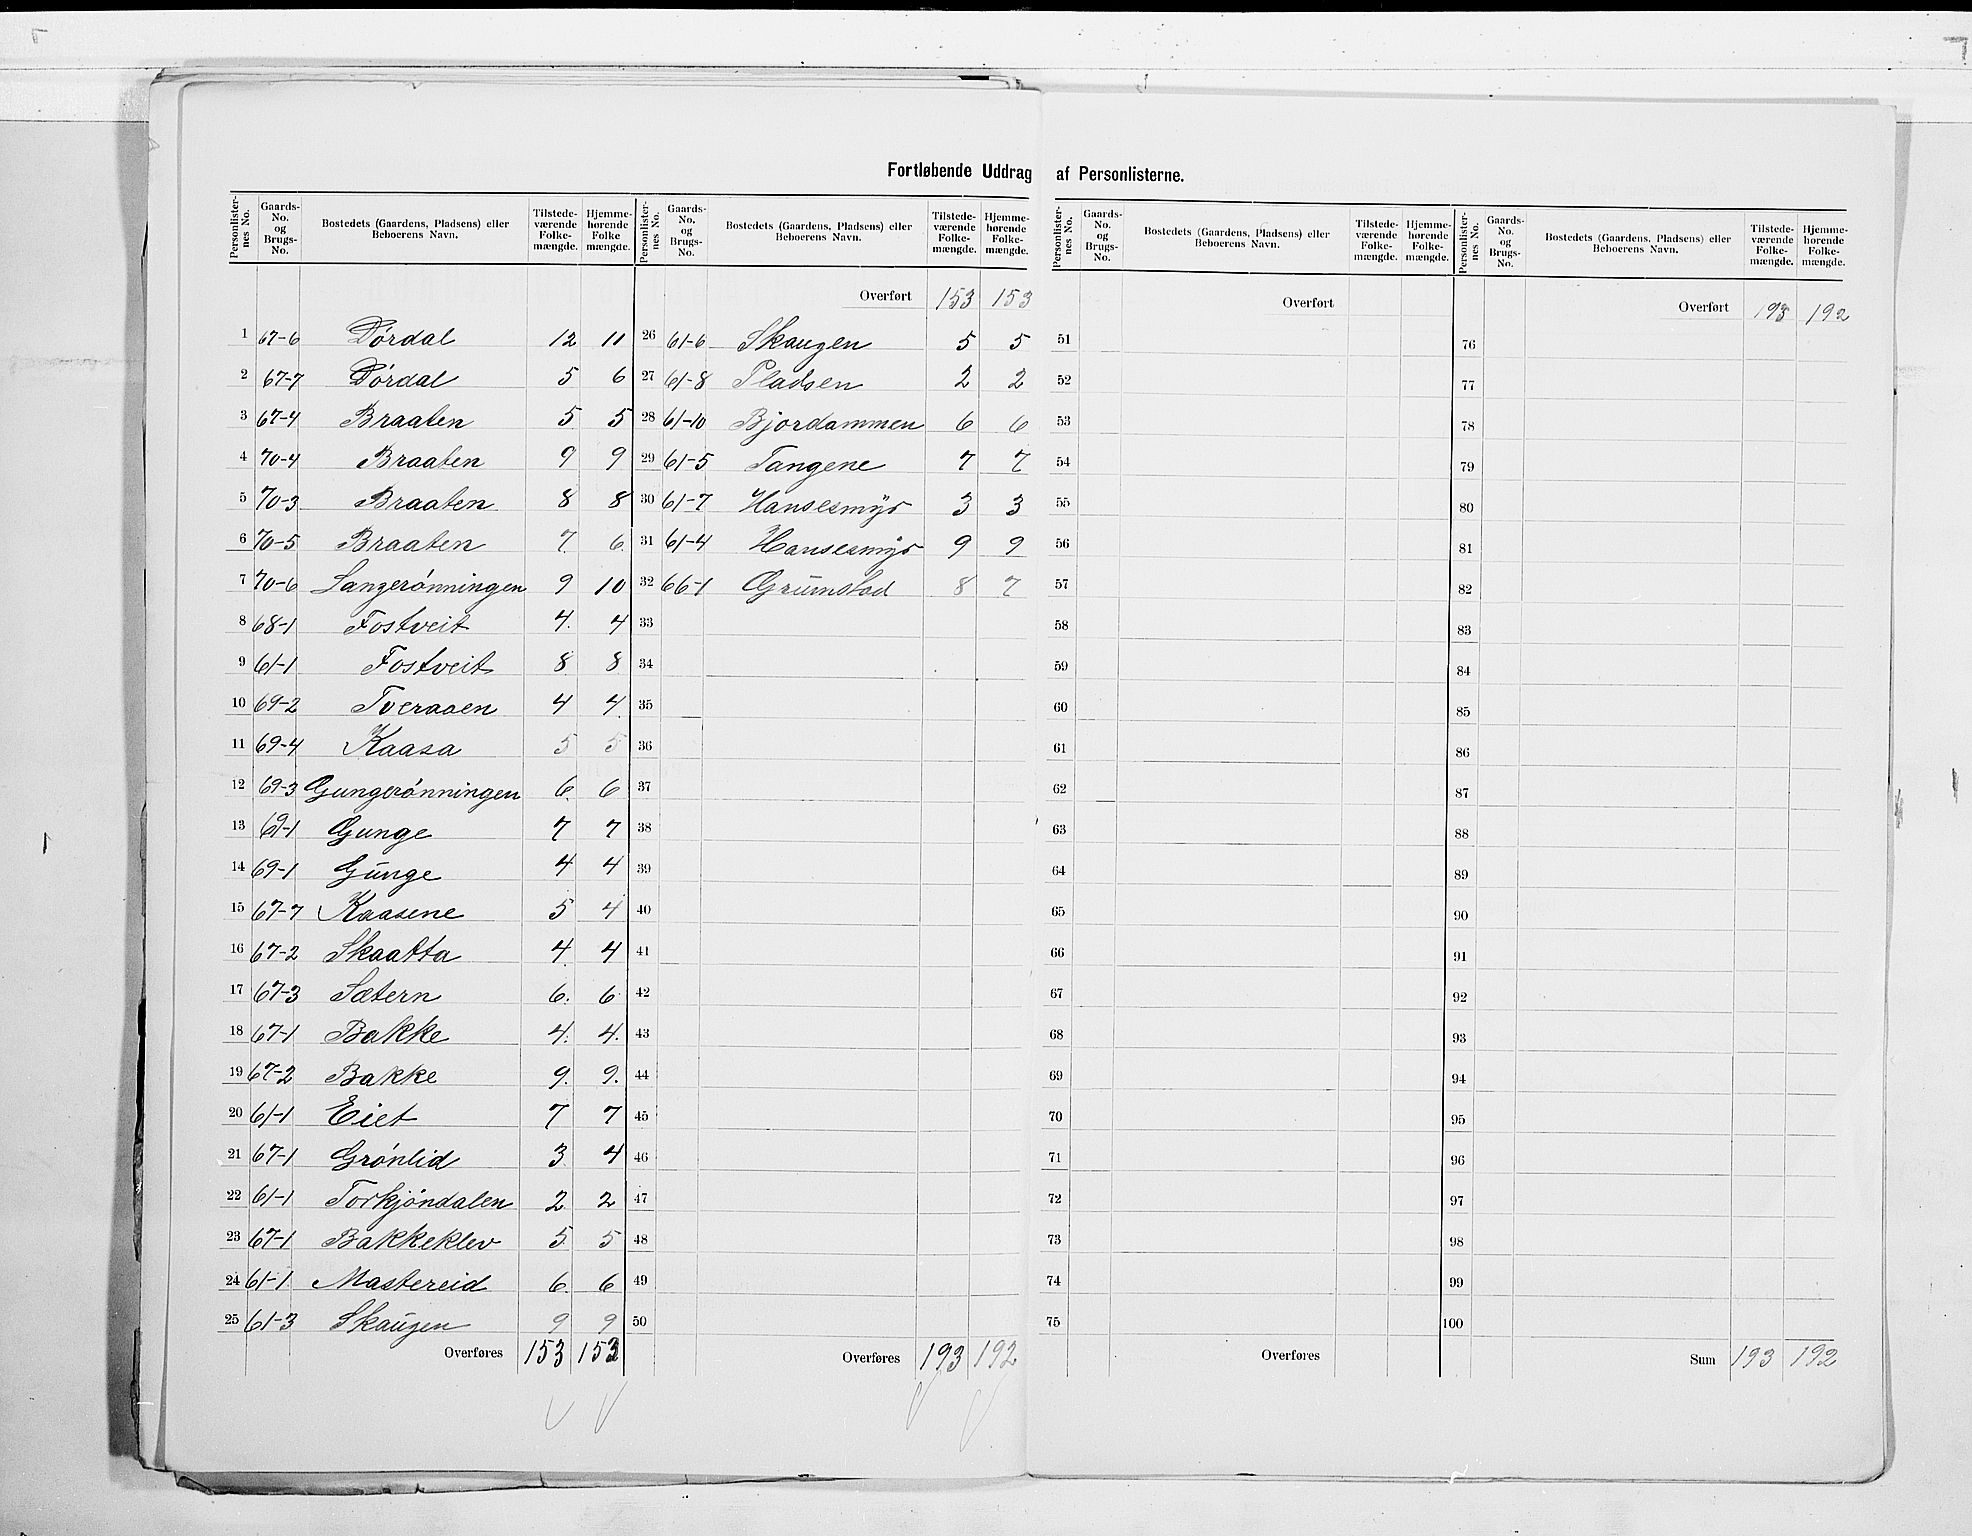 Fortløbende Uddrag af Personlisterne.
Personlister-nes No. Gaards-No. og Brugs-No. Bostedets (Gaardens, Pladsens) eller Beboerens Navn. Tilstede-værende Folke-mængde. Hjemme-hørende Folke mængde.
1 67-6 Dørdal 12 11
2 67-7 Dørdal 5 6
3 67-4 Braaten 5 5
4 70-4 Braaten 9 9
5 70-3 Braaten 8 8
6 70-5 Braaten 7. 6
7 70-6 Langerønningen 9 10
8 68-1 Fostveit 4. 4
9 61-1 Fostveit 8 8
10 69-2 Tveraaen 4 4
11 69-4 Kaasa 5 5
12 69-3 Gungerønningen 6. 6
13 69-1 Gunge 7 7
14 69-1 Gunge 4 4
15 67-7 Kaasene 5 4
16 67-2 Skaatta 4. 4
17 67-3 Sætern 6. 6
18 67-1 Bakke 4. 4.
19 67-2 Bakke 9. 9.
20 61-1 Eiet 7 7
21 67-1 Grønlid 3 4
22 61-1 Torkjøndalen 2 2
23 67-1 Bakkeklev 5 5
24 61-1 Mastereid 6. 6
25 61-3 Skaugen 9 9
Overføres 153 153
Personlister-nes No. Gaards-No. og Brugs-No. Bostedets (Gaardens, Pladsens) eller Beboerens Navn. Tilstede-værende Folke-mængde. Hjemme-hørende Folke-mængde.
Overført 153 153
26 61-6 Skaugen 5 5
27 61-8 Pladsen 2 2
28 61-10 Bjordammen 6 6
29 61-5 Tangene 7 7
30 61-7 Hansesmyr 3 3
31 61-4 Hansesmyr 9 9
32 66-1 Grumstad 8 7
33
34
35
36
37
38
39
40
41
42
43
44
45
46
47
48
49
50
Overføres 193 192
Personlister-nes No. Gaards-No. og Brugs-No. Bostedets (Gaardens, Pladsens) eller Beboerens Navn. Tilstede-værende Folke-mængde. Hjemme-hørende Folke-mængde.
Overført
51
52
53
54
55
56
57
58
59
60
61
62
63
64
65
66
67
68
69
70
71
72
73
74
75
Overføres
Personlister-nes No. Gaards-No. og Brugs-No. Bostedets (Gaardens, Pladsens) eller Beboerens Navn. Tilstede-værende Folke-mængde. Hjemme-hørende Folke-mængde.
Overført 193 192
76
77
78
79
80
81
82
83
84
85
86
87
88
89
90
91
92
93
94
95
96
97
98
99
100
Sum 193 192